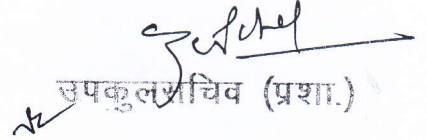 उपकुलसचिव (प्रशा.)